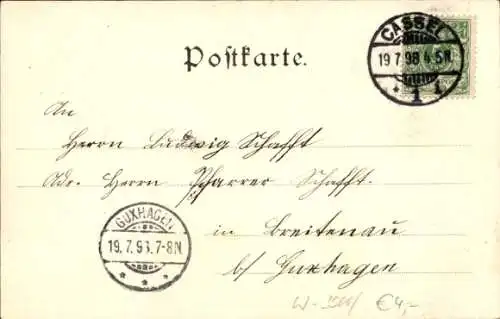 CASSEL
19 7 98 4-5 N.
* 1 i
Postkarte.
An
Herrn Ludwig Schafft
Adr. Herrn Pfarrer Schafft.
in Breitenau
b/ Guxhagen
GUXHAGEN
19. 7. 98. 7-8N.
* * *
€4,-